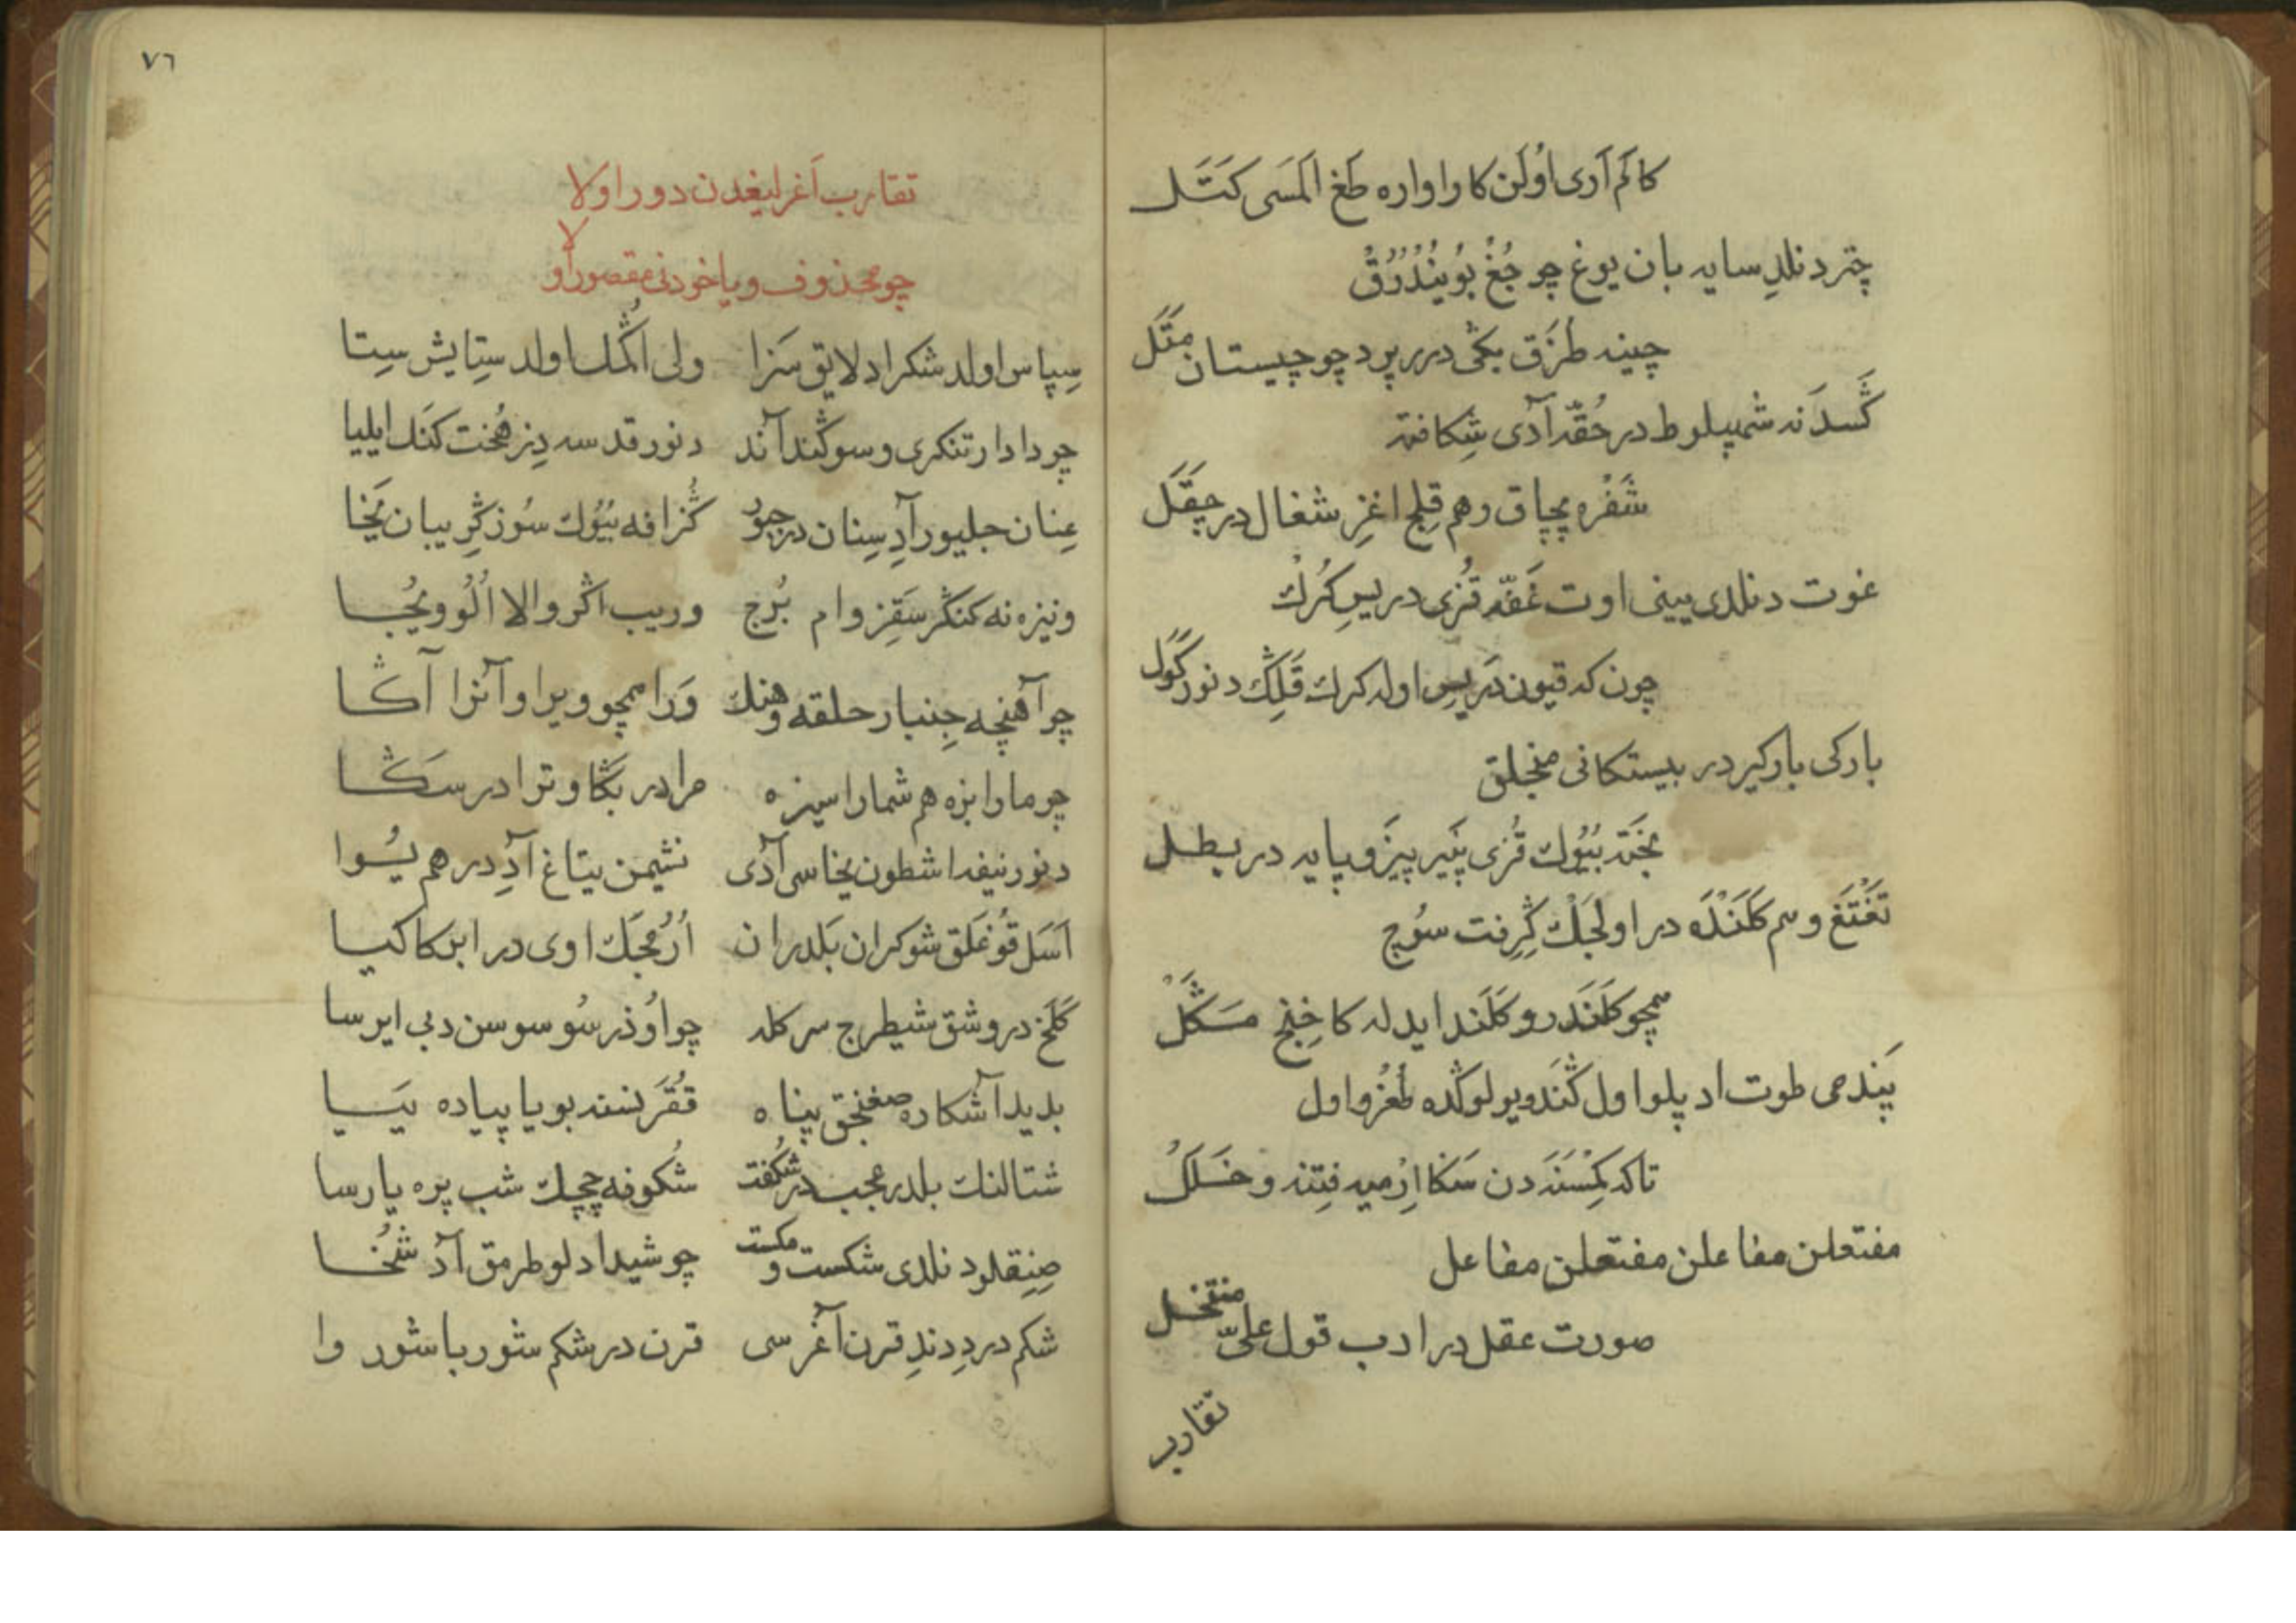 كاكم آرى اولن كار اواره طغ الماسى كتل
چتر دنلد سايه بان يوغ چو جغ بويندرق
چينه طزق يكى درر پرد چو چيستان متل
كسدنه شمپلوط در حقه آدى شكافته
شفره پچاق وهم قلج اغز شغال در چقل
غوت دنلدى يينى اوت غفه قزى در پس كرك
چون كه قيون دريس اوله كرك قلك دنور كول
باركى باركير در بيستكانى منجلق
بخته بيوك قزى پنير پيز و پايه در بطل
تغتغ وسم كلنده در اولجك كرفت سوچ
همچو كلندر و كلند ايدله كا خنج مسكل
پندمى طوت اد پلو اول كند ويولوكده طغرو اول
تاكه كمسنه دن سكا ارميه فتنه و خلل
مفتعلن مفاعلن مفتعلن مفاعل
صورت عقل در ادب قول على منتخل
تقارب
٧٦
تقارب آغرليغدن دور اولا
چو محذوف ويا خودنى مقصور اولا
سپاس اولد شكر اد لايق سزا ولى اكمك اولد ستايش ستا
چو دادار تنكرى وسوكند آند دنور قدسه دز هخت كنك ايليا
عنان جليور آد سنان در جبو كزافه بيوك سوز كريبان يخا
ونيزه نه كنكر سقز وام برج وريب اكر والا الو ويجا
چو آهنچه جنبار حلقه وهنك ورا همچو ويرا و آنرا آكا
چو مارا بزه هم شمارا سيزه مرا در بكا وترا در سكا
دنور نيفه اشطون يخاسى آدى نشيمن يتاغ آد در هم يوا
اسل قوغلق شوكران بلدران ارمجك اوى در ابركاكيا
كلخ در وشق شيطرج سركله چو اوذر سوسوسن دبى ايرسا
بديد آشكاره صغنجق پناه ققر بسنه بويا پياده پيا
شتالنك بلدر عجب در شكفت شكوفه چيچك شب پره يارسا
صنقلود نلدى شكست و مكست چو شيدا دلو طرمق آد شخا
شكم درد دند قرن آغرسى قرن در شكم شوربا شور وا